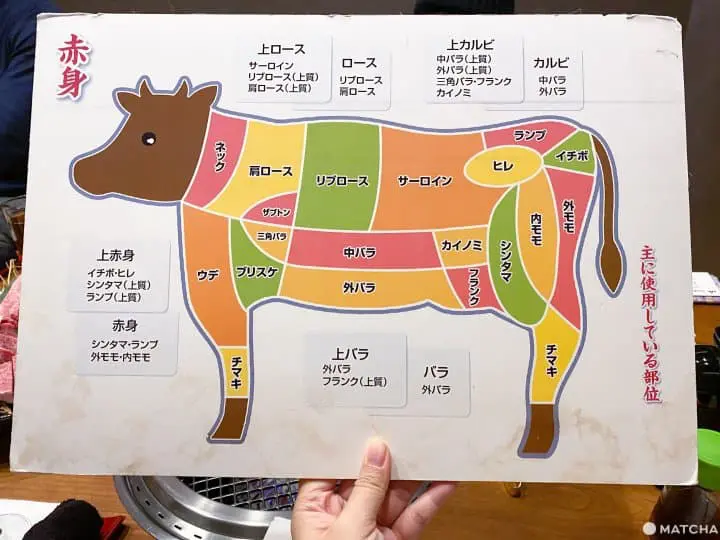 赤身
上ロース
サーロイン
リブロース(上質)
肩ロース(上質)
ロース
リブロース
肩ロース
上カルビ
中バラ(上質)
外バラ(上質)
三角バラ・フランク
カイノミ
カルビ
中バラ
外バラ
ネック
肩ロース
リブロース
サーロイン
ランプ
ヒレ
イチボ
ザブトン
三角バラ
中バラ
カイノミ
シンタマ
内モモ
外モモ
ウデ
ブリスケ
外バラ
フランク
チマキ
チマキ
上赤身
イチボ・ヒレ
シンタマ(上質)
ランプ(上質)
赤身
シンタマ・ランプ
外モモ・内モモ
上バラ
外バラ
フランク(上質)
バラ
外バラ
主に使用している部位
MATCHA